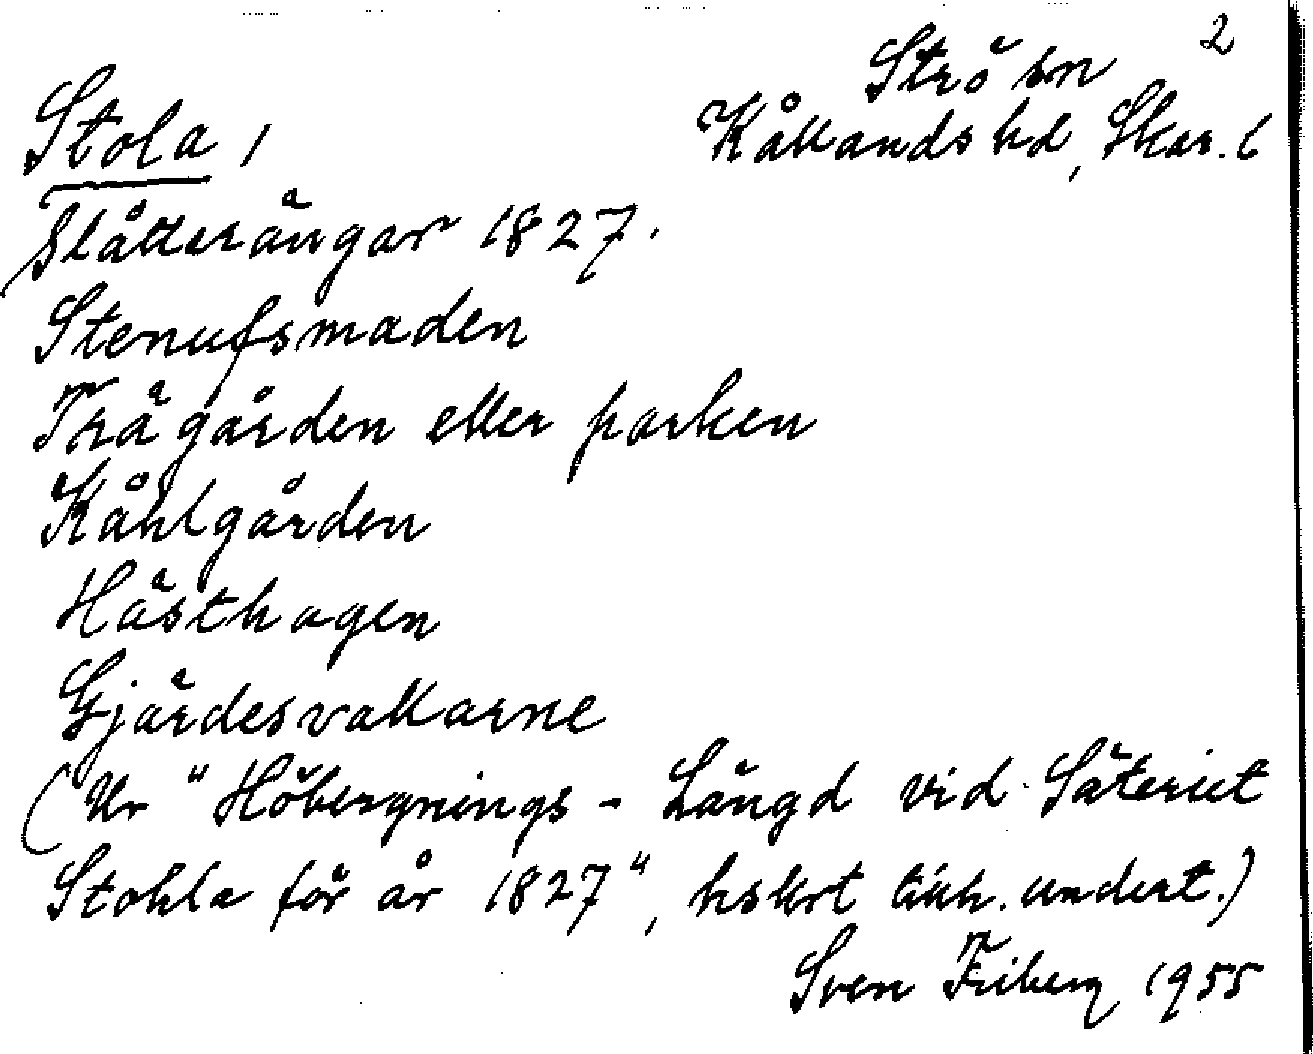 2
Strö sn
Stola,
Kållands hd, Skar. l
Slåtterängar 1827.
Stenufsmaden
Trägården eller parken
Kåhlgården
Hästhagen
Gjärdesvallarne
(Ur "Höbergnings - Längd vid Säteriet
Stohla för år 1827", hskrt tillh. undert.)
Sven Friberg 1955